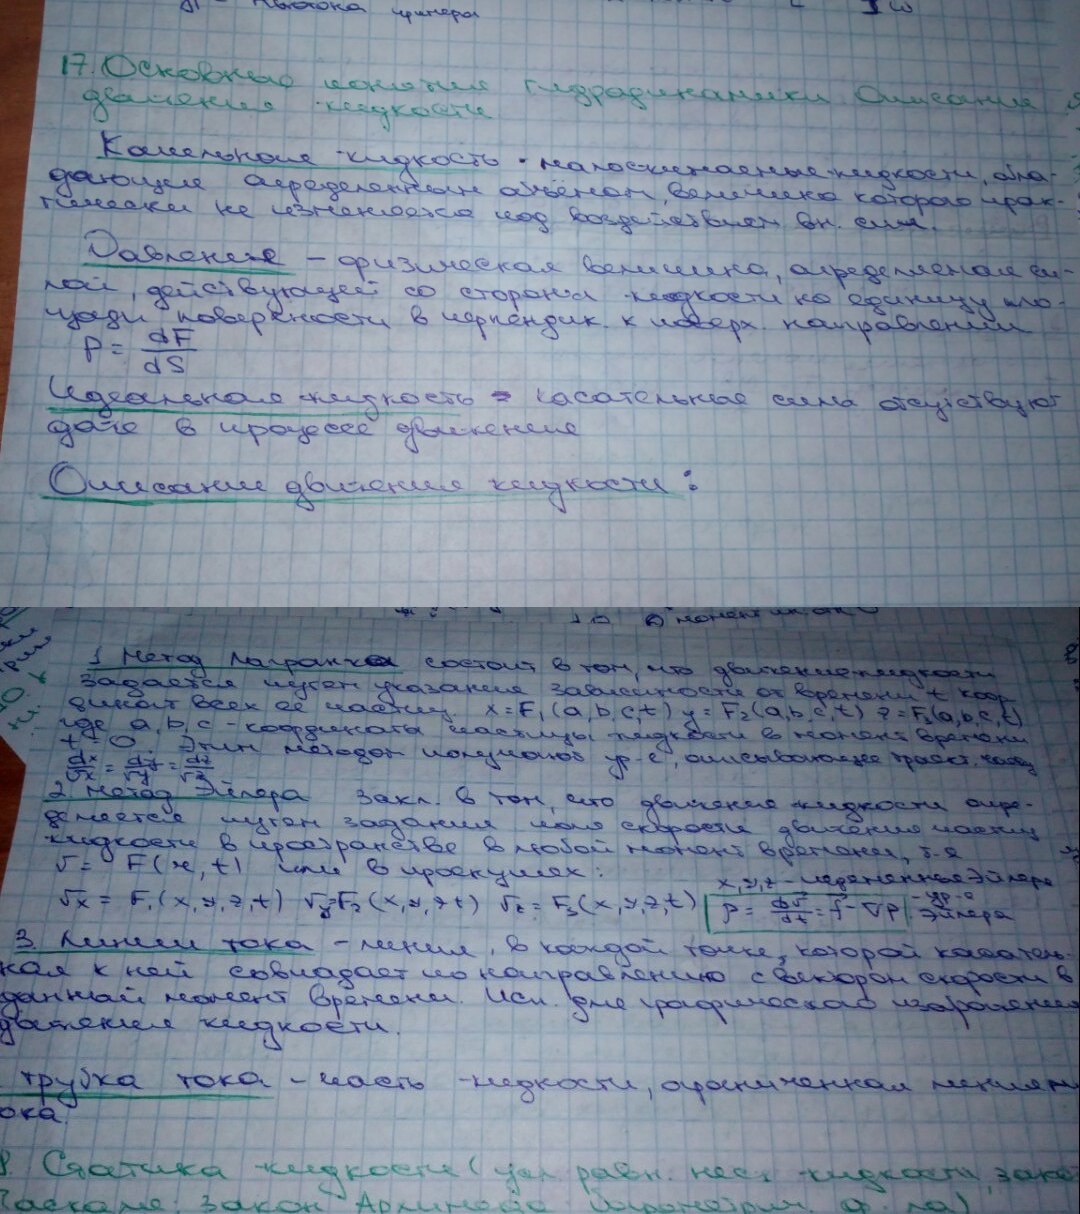 17. Основные понятия гидродинамики Описание
движения жидкости
Капельная жидкость - малосжимаемые жидкости, обла-
дающие определенным объёмом, величина которого прак-
тически не изменяется под воздействием вн. сил.
Давление - физическая величина, определяемая си-
лой, действующей со стороны жидкости на единицу пло-
щади поверхности в перпендик. к поверх. направлении
P = dF/dS
Идеальная жидкость - касательные силы отсутствуют
даже в процессе движения
Описание движения жидкости:
1. Метод Лагранжа состоит в том, что движение жидкости
задается путем указания зависимости от времени t коор
динат всех её частиц x=F₁(a,b,c,t) y=F₂(a,b,c,t) z=F₃(a,b,c,t)
где a,b,c - координаты частицы жидкости в момент времени
t=0. Этим методом получают ур-е, описывающее траект. частиц
dx/vx = dy/vy = dz/vz
2. Метод Эйлера закл. в том, что движение жидкости опре-
деляется путем задания поля скорости движения частиц
жидкости в пространстве в любой момент времени, т.е
v = F(r,t) или в проекциях:
x,y,z - переменные Эйлера
vx = F₁(x,y,z,t) vy=F₂(x,y,z,t) vz=F₃(x,y,z,t) ρ = dv/dt = f - ∇P - ур-е Эйлера
3. Линии тока - линия, в каждой точке, которой касатель-
ная к ней совпадает по направлению с вектором скорости в
данный момент времени. Исп. для графического изображения
движения жидкости.
трубка тока - часть жидкости, ограниченная линиями
ока.
8. Статика жидкости (усл равн. нес. жидкости, зако
Паскаля. Закон Архимеда Барометрич. ф. ла)